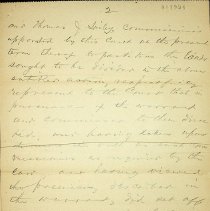 2
and Thomas J Commissioners
appointed by this Court at the present
term thereof to partition the lands
sought to be divided in the above
entitled action, respectfully
represent to the Court that in
pursuance of the warrant
and commission to them direc
ted, and having taken upon
themselves the oath
as required by the
law and having viewed
the premises, described in
the warrant, did set off